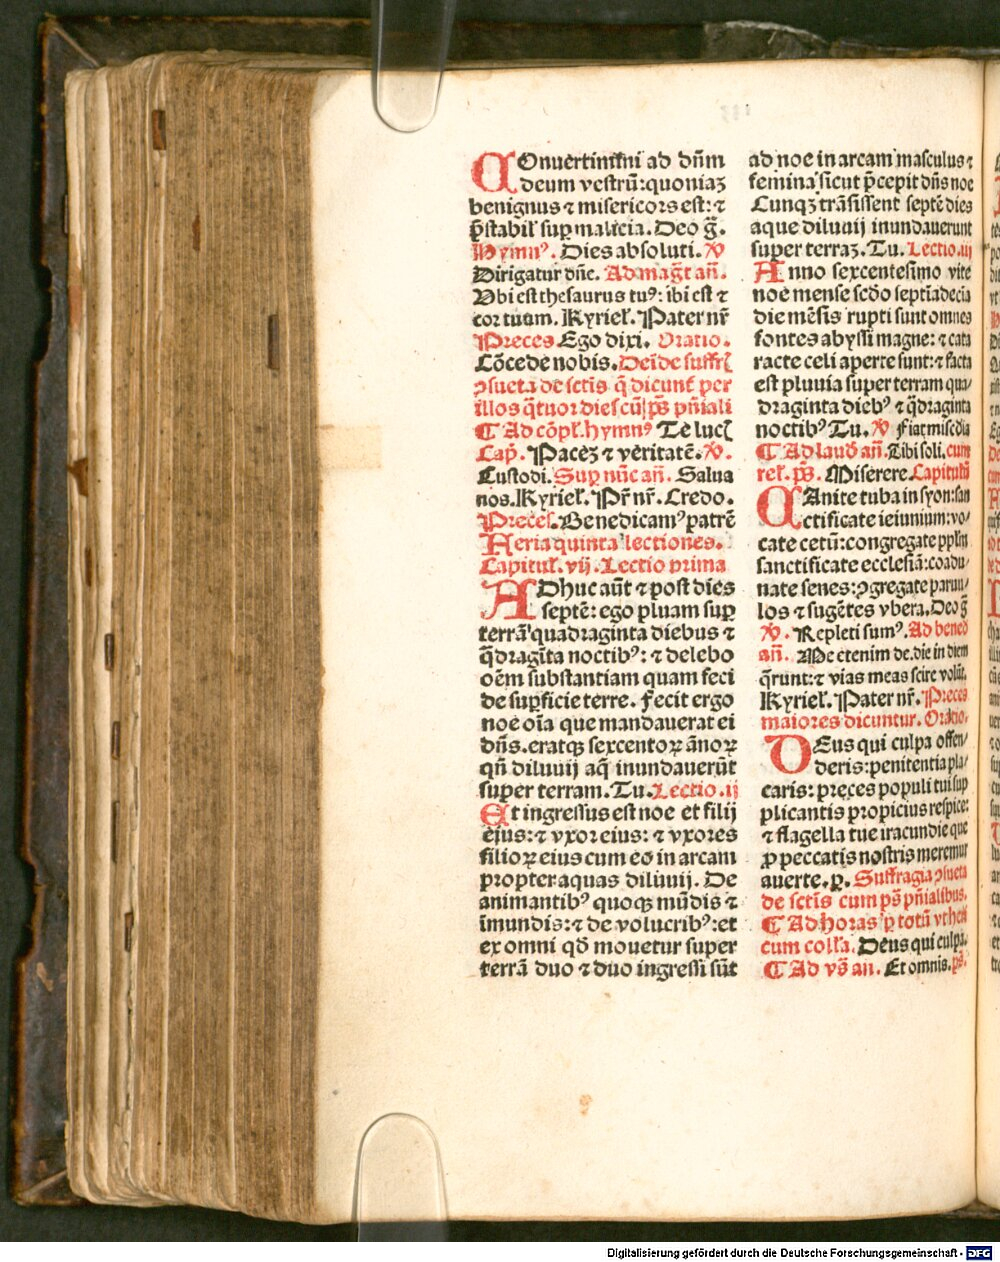 COnuertimīni ad dn̄m
deum vestrū: quoniaꝫ
benignus ⁊ misericors est: ⁊
p̄stabil̓ suꝑ malicia. Deo g̃.
Hymnꝰ. Dies absoluti. ℣
Dirigatur dn̄e. Ad mag̃t an̄.
Vbi est thesaurus tuꝰ: ibi est ⁊
cor tuum. Kyriel̓. Pater nr̄
Preces Ego dixi. Oratio.
Cōcede nobis. Deīde suffrꝭ
ꝯsueta de sctīs q̄ dicunt̄ per
illos q̄tuor dies cū pṡ pn̄iali
¶ Ad cōpl̓. hymnꝰ Te lucꝭ
Cap̄. Paceꝫ ⁊ veritatē. ℣.
Custodi. Suꝑ nūc an̄. Salua
nos. Kyriel̓. Pr̄ nr̄. Credo.
Preces. Benedicamꝰ patrē
Feria quinta lectiones.
Capitul̓. vij. Lectio prima
ADhuc aūt ⁊ post dies
septē: ego pluam suꝑ
terrā quadraginta diebus ⁊
q̄dragīta noctibꝰ: ⁊ delebo
oēm substantiam quam feci
de suꝑficie terre. Fecit ergo
noe oīa que mandauerat ei
dn̄s. eratqꝫ sexcentoꝝ ānoꝝ
qn̄ diluuij aq̄ inundauerūt
super terram. Tu. Lectio. ij
Et ingressus est noe et filij
eius: ⁊ vxor eius: ⁊ vxores
filioꝝ eius cum eo in arcam
propter aquas diluuij. De
animantibꝰ quoqꝫ mūdis ⁊
īmundis: ⁊ de volucribꝰ: et
ex omni qd̄ mouetur super
terrā duo ⁊ duo ingressi sūt
ad noe in arcam masculus ⁊
femina sicut p̄cepit dn̄s noe
Cunqꝫ trāsissent septē dies
aque diluuij inundauerunt
super terraꝫ. Tu. Lectio. iij
Anno sexcentesimo vite
noe mense scd̄o septīadecia
die mēsis rupti sunt omnes
fontes abyssi magne: ⁊ cata
racte celi aperte sunt: ⁊ facta
est pluuia super terram qua/
draginta diebꝰ ⁊ q̄draginta
noctibꝰ Tu. ℣ Fiat miscd̄ia
¶ Ad laud̓ an̄. Tibi soli. cum
rel̓. pṡ. Miserere. Capitulū
CAnite tuba in syon: san
ctificate ieiunium: vo/
cate cetū: congregate ppl̄m
sanctificate ecclesiā: coadu/
nate senes: ꝯgregate paruu/
los ⁊ sugētes vbera. Deo g̃
℣. Repleti sumꝰ. Ad bened̓
an̄. Me etenim de. die in diem
q̄runt: ⁊ vias meas scire volūt.
Kyriel̓. Pater nr̄. Preces
maiores dicuntur. Oratio.
DEus qui culpa offen/
deris: penitentia pla/
caris: preces populi tui sup
plicantis propicius respice:
⁊ flagella tue iracundie que
ꝓ peccatis nostris meremur
auerte. p. Suffragia ꝯsueta
de sctīs cum pṡ pn̄ialibus.
¶ Ad horas ꝑ totū vt heri
cum coll̓a. Deus qui culpa.
¶ Ad vs̄ an. Et omnis. pṡ.
Digitalisierung gefördert durch die Deutsche Forschungsgemeinschaft - DFG